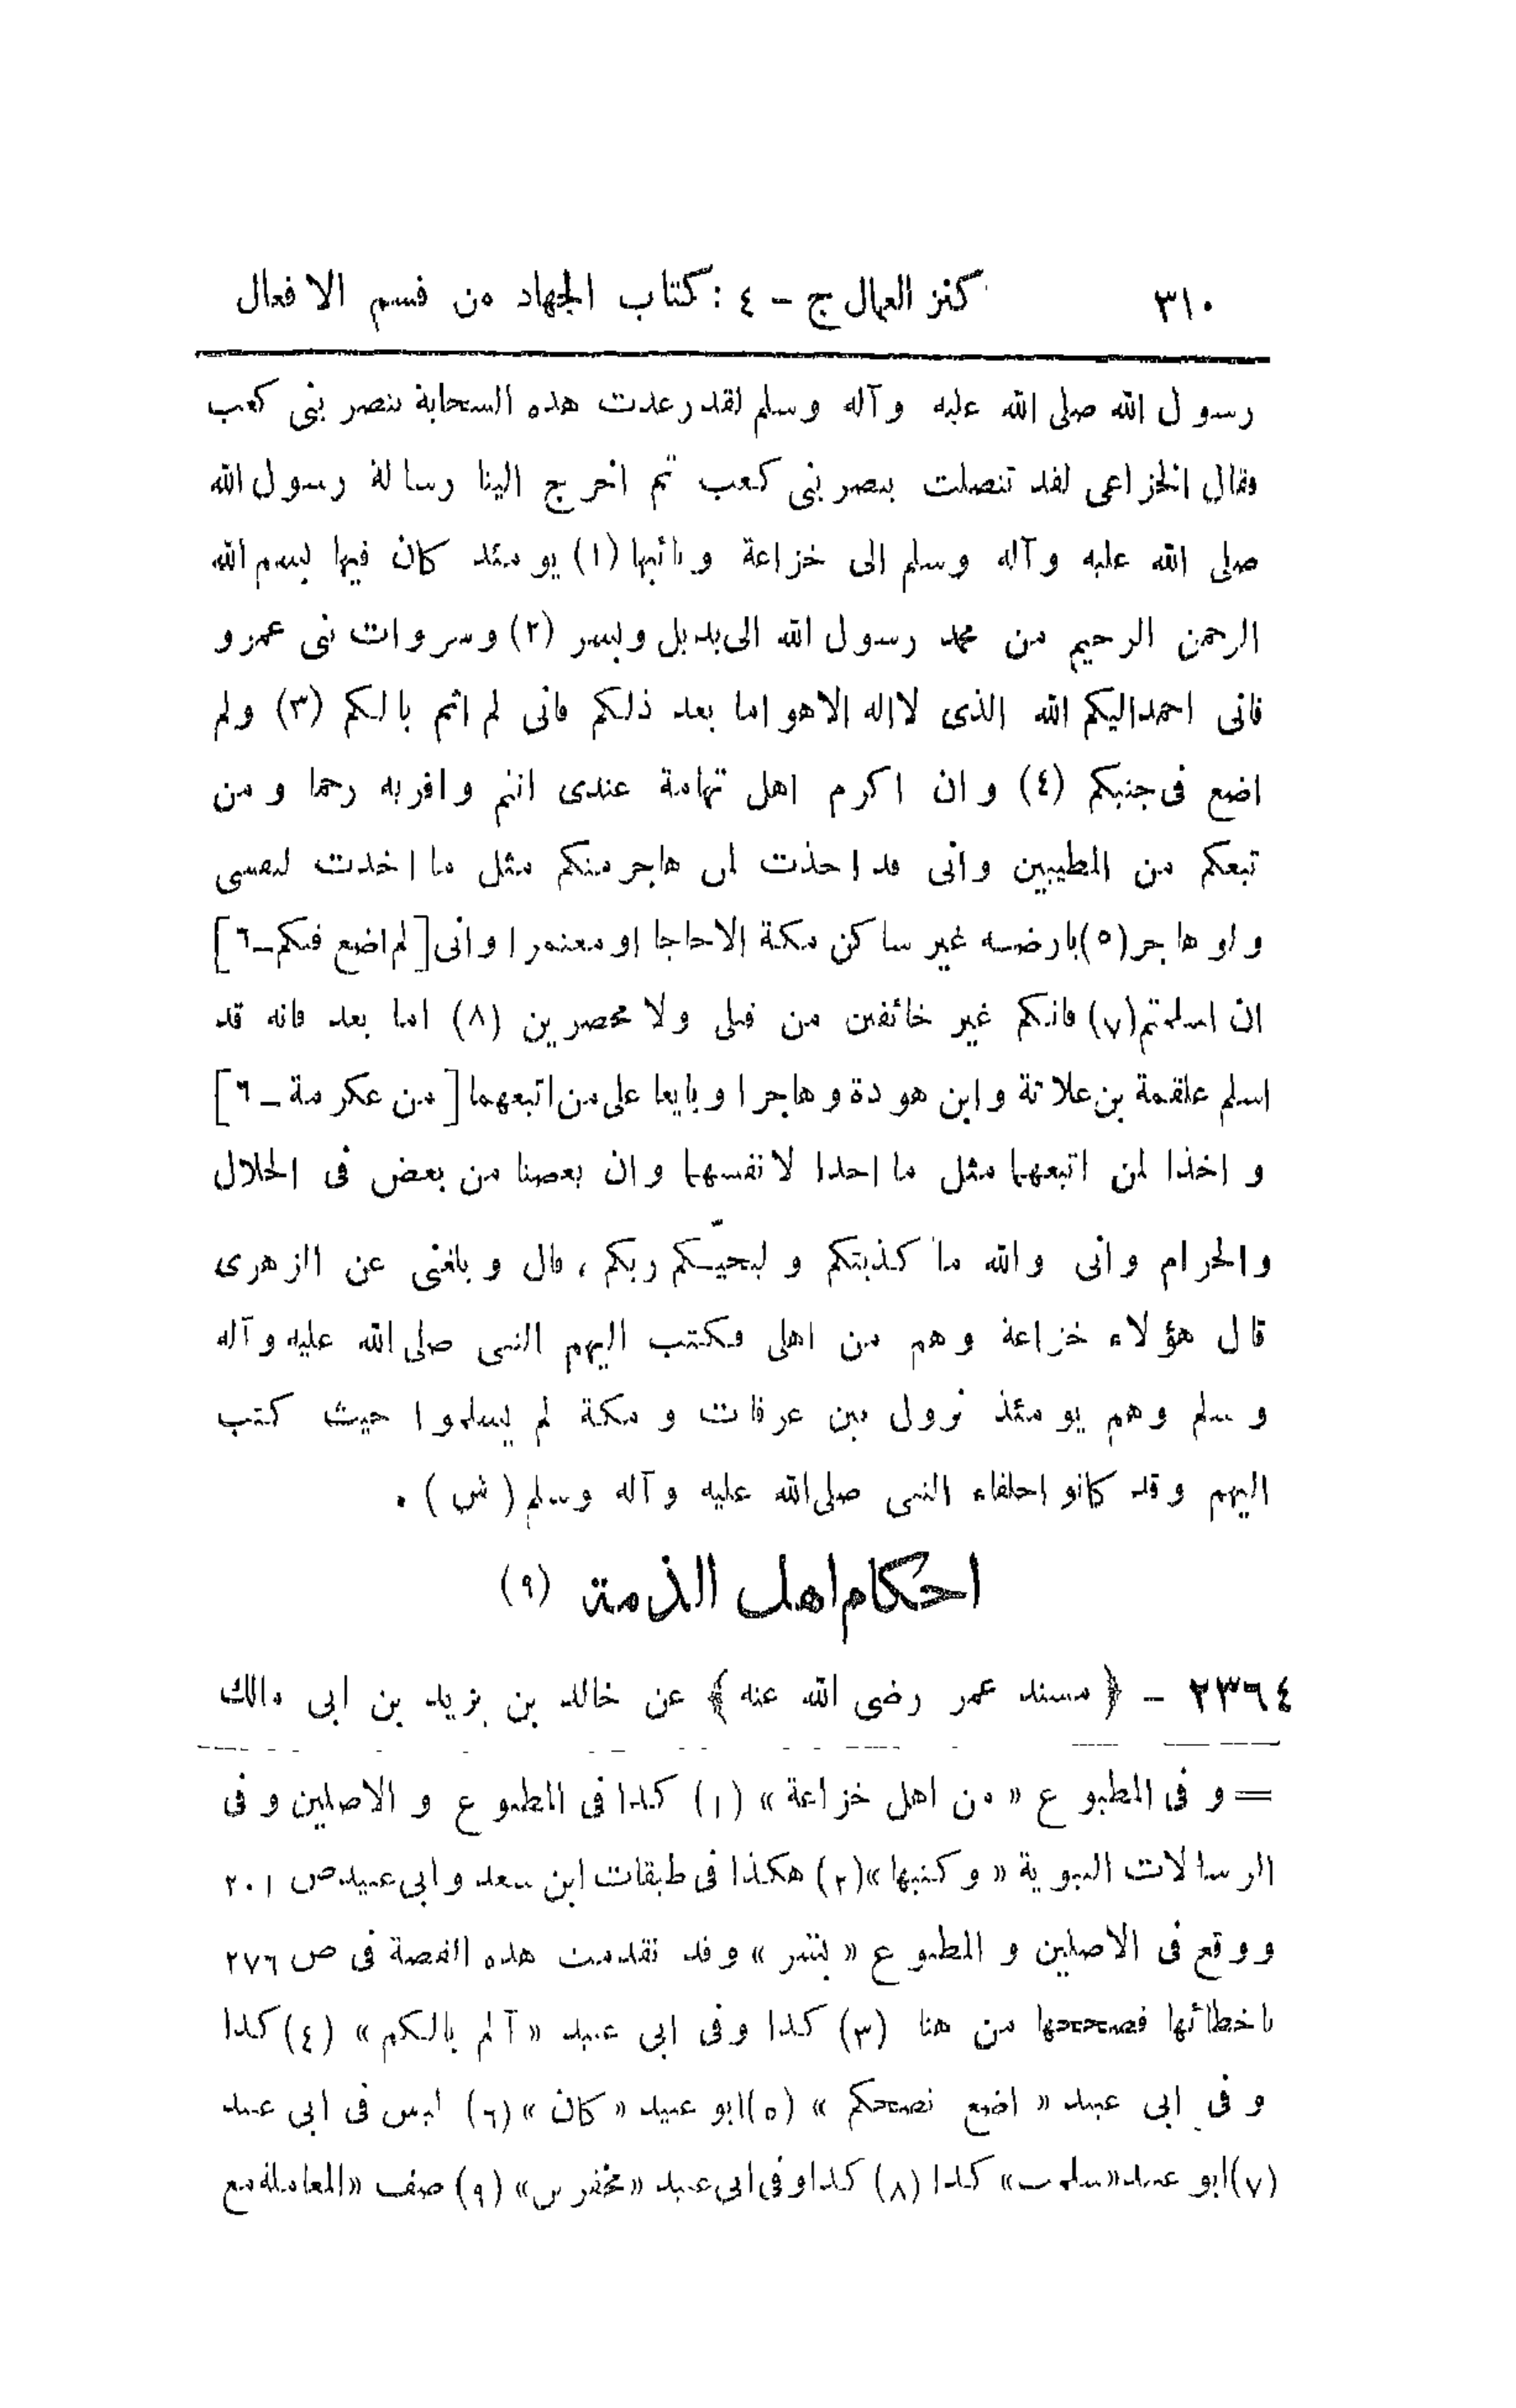 ٣١٠ كنز العمال ج - ٤ : كتاب الجهاد من قسم الافعال
رسول الله صلى الله عليه وآله وسلم لقد رعدت هذه السحابة بنصر بنى كعب
فقال الخزاعى لقد تنصلت بنصر بنى كعب ثم اخرج الينا رسالة رسول الله
صلى الله عليه وآله وسلم الى خزاعة (١) يومئذ كان فيها بسم الله
الرحمن الرحيم من محمد رسول الله الى بديل وبسر (٢) وسروات بنى عمرو
فانى احمد اليكم الله الذى لا اله الا هو اما بعد ذلكم فانى لم اثم بالكم (٣) ولم
اضع فى جنبكم (٤) وان اكرم اهل تهامة عندى انتم واقربه رحما ومن
تبعكم من المطيبين وانى قد اخذت لمن هاجر منكم مثل ما اخذت لنفسى
ولو هاجر (٥) بارضه غير ساكن مكة الا حاجا او معتمرا وانى [لم اضع فيكم - ٦]
ان اسلمتم (٧) فانكم غير خائفين من قبلى ولا محصرين (٨) اما بعد فانه قد
اسلم علقمة بن علاثة وابن هوذة وهاجرا وبايعا على من اتبعهما [من عكرمة - ٦]
واخذا لمن اتبعهما مثل ما اخذا لانفسهما وان بعضنا من بعض فى الحلال
والحرام وانى والله ما كذبتكم وليحيّكم ربكم ، قال وبلغنى عن الزهرى
قال هؤلاء خزاعة وهم من اهلى فكتب اليهم النبى صلى الله عليه وآله
وسلم وهم يومئذ نزول بين عرفات ومكة لم يسلموا حيث كتب
اليهم وقد كانوا حلفاء النبى صلى الله عليه وآله وسلم (ش) .
احكام اهل الذمة (٩)
٢٣٦٤ - ﴿مسند عمر رضى الله عنه﴾ عن خالد بن يزيد بن ابى مالك
= وفى المطبوع « من اهل خزاعة » (١) كذا فى المطبوع والاصلين وفى
الرسالات النبوية « وكتبها » (٢) هكذا فى طبقات ابن سعد وابى عبيد ص ٢٠١
ووقع فى الاصلين والمطبوع « بشر » وقد تقدمت هذه القصة فى ص ٢٧٦
باخطائها فصححها من هنا (٣) كذا وفى ابى عبيد « آلم بالكم » (٤) كذا
وفى ابى عبيد « اضع نصحكم » (٥) ابو عبيد « كان » (٦) ليس فى ابى عبيد
(٧) ابو عبيد « سلمت » كذا (٨) كذا وفى ابى عبيد « مخفرين » (٩) صنف « المعاملة مع